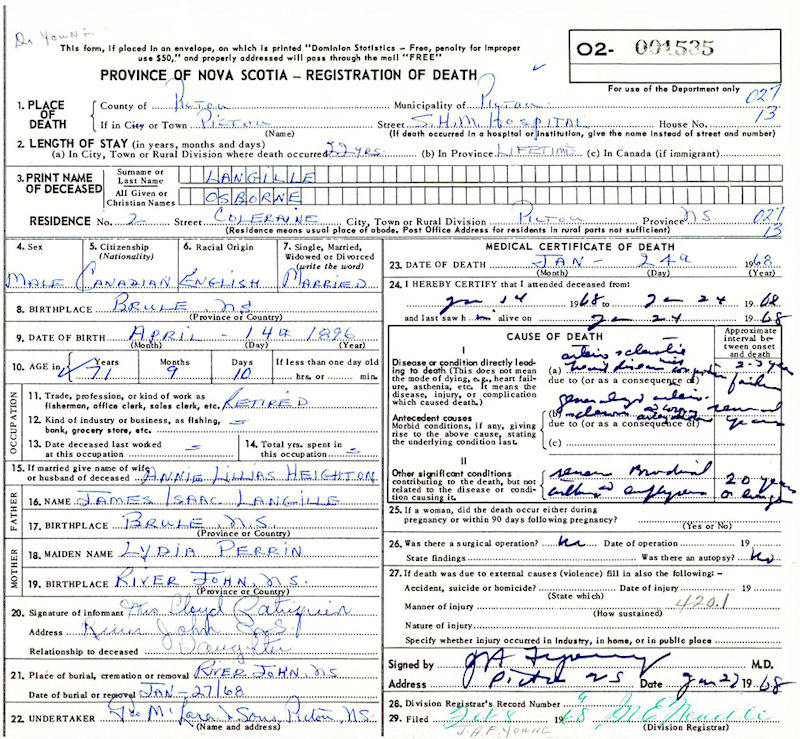 Dr Young
This form, if placed in an envelope, on which is printed "Dominion Statistics – Free, penalty for improper
use $50," and properly addressed will pass through the mail "FREE"
PROVINCE OF NOVA SCOTIA – REGISTRATION OF DEATH
O2- 001535
For use of the Department only
1. PLACE OF DEATH
County of Pictou Municipality of Pictou 027
If in City or Town Pictou Street S.H.M. Hospital House No. 13
(Name) (If death occurred in a hospital or institution, give the name instead of street and number)
2. LENGTH OF STAY (in years, months and days)
(a) In City, Town or Rural Division where death occurred 22 yrs. (b) In Province Lifetime (c) In Canada (if immigrant)
3. PRINT NAME OF DECEASED
Surname or Last Name LANGILLE
All Given or Christian Names OSBORNE
RESIDENCE No. 2 Street Coleraine City, Town or Rural Division Pictou Province N.S. 027
(Residence means usual place of abode. Post Office Address for residents in rural parts not sufficient) 13
4. Sex 5. Citizenship (Nationality) 6. Racial Origin 7. Single, Married, Widowed or Divorced (write the word)
Male Canadian English Married
8. BIRTHPLACE Brule, NS
(Province or Country)
9. DATE OF BIRTH April - 14th 1896
(Month) (Day) (Year)
10. AGE in Years Months Days If less than one day old
71 9 10 hrs. or min.
OCCUPATION
11. Trade, profession, or kind of work as fisherman, office clerk, sales clerk, etc. Retired
12. Kind of industry or business, as fishing, bank, grocery store, etc.
13. Date deceased last worked at this occupation 14. Total yrs. spent in this occupation
15. If married give name of wife or husband of deceased Annie Lillias Heighton
FATHER
16. NAME James Isaac Langille
17. BIRTHPLACE Brule, N.S.
(Province or Country)
MOTHER
18. MAIDEN NAME Lydia Perrin
19. BIRTHPLACE River John, NS.
(Province or Country)
20. Signature of informant Mrs Cloyd Patriquin
Address River John
Relationship to deceased Daughter
21. Place of burial, cremation or removal River John, NS
Date of burial or removal Jan - 27/68
22. UNDERTAKER Geo McLaren & Sons, Pictou NS.
(Name and address)
MEDICAL CERTIFICATE OF DEATH
23. DATE OF DEATH Jan - 24th 1968
(Month) (Day) (Year)
24. I HEREBY CERTIFY that I attended deceased from:
Jan 14 1968 to Jan 24 1968
and last saw him alive on Jan 24 1968
CAUSE OF DEATH
Approximate interval between onset and death
I
Disease or condition directly leading to death (This does not mean the mode of dying, e.g., heart failure, asthenia, etc. It means the disease, injury, or complication which caused death.)
(a) arteriosclerotic heart disease failure 2-3 years
due to (or as a consequence of)
Antecedent causes
Morbid conditions, if any, giving rise to the above cause, stating the underlying condition last.
(b) several years
due to (or as a consequence of)
(c)
II
Other significant conditions contributing to the death, but not related to the disease or condition causing it.
severe Bronchial asthma & emphysema 20 years or longer
25. If a woman, did the death occur either during
pregnancy or within 90 days following pregnancy?
(Yes or No)
26. Was there a surgical operation? No Date of operation 19
State findings Was there an autopsy? No
27. If death was due to external causes (violence) fill in also the following: –
Accident, suicide or homicide? Date of injury 19
(State which)
Manner of injury 420.1
(How sustained)
Nature of injury
Specify whether injury occurred in industry, in home, or in public place
Signed by J A F Young M.D.
Address Pictou NS Date Jan 27 1968
28. Division Registrar's Record Number 9
29. Filed Feb 8 1968
J.A.F. YOUNG (Division Registrar)